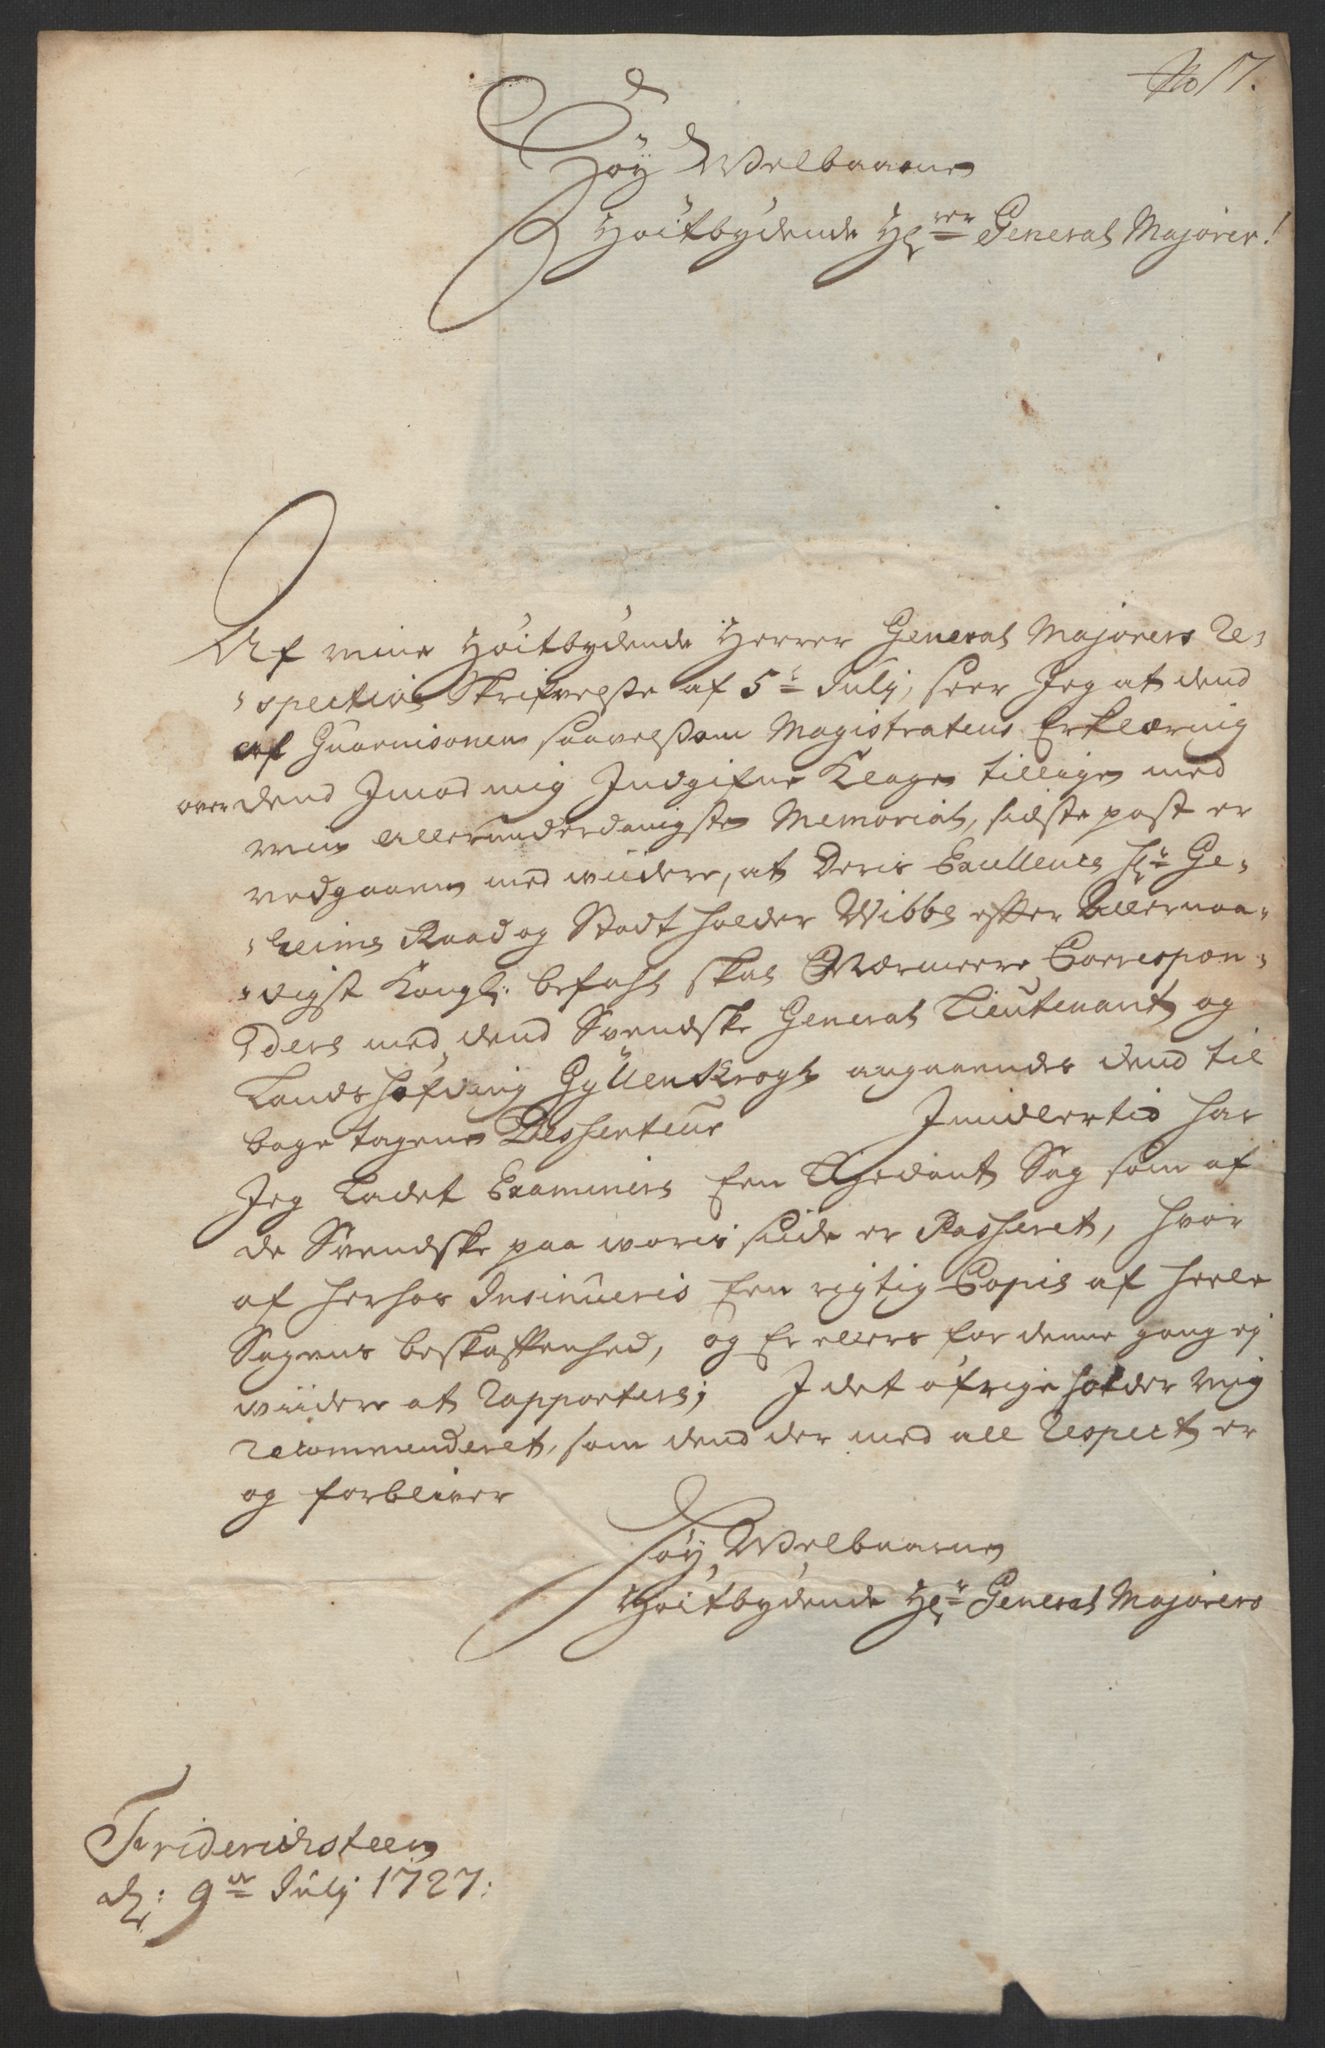 No 17.
Høy Welbaarne
Høitbydende H:rer General Majorer!
Af mine Høitbydende Herrer General Majorers Re-
spective Skrifvelsse af 5te July, seer Jeg at dend
af Guarnisonen saavelssom Magistratens Erklæring
over dend Imod mig Indgifne Klage tillige med
min Allerunderdanigste Memorial, sidste post er
vedgaaen med widere, at Deris Excellence Hr Ge-
heime Raad og Stadtholder Wibbe effter Allernaa-
digst Kongl: befahl skal Nærmeere Correspon-
dere med dend Svendske General Lieutenant og
Landshøfding Gyllenkrogh angaaendes dend til
bage tagene Desserteur Imidlertid har
Jeg Ladet Examinere Een Sag som af
de Svendske paa woris siide er Passeret, hvor
af herhos Insinueris Een rigtig Copie af heele
Sagens beskaffenhed, og Er ellers for denne gang ej
wiidere at Rapportere; I det øfrige holder mig
recommenderet, som dend der med all Respect er
og forbliver
Høy Welbaarne
Høitbydende Hr General Majorers
Friderichsteen
d: 9de July 1727: